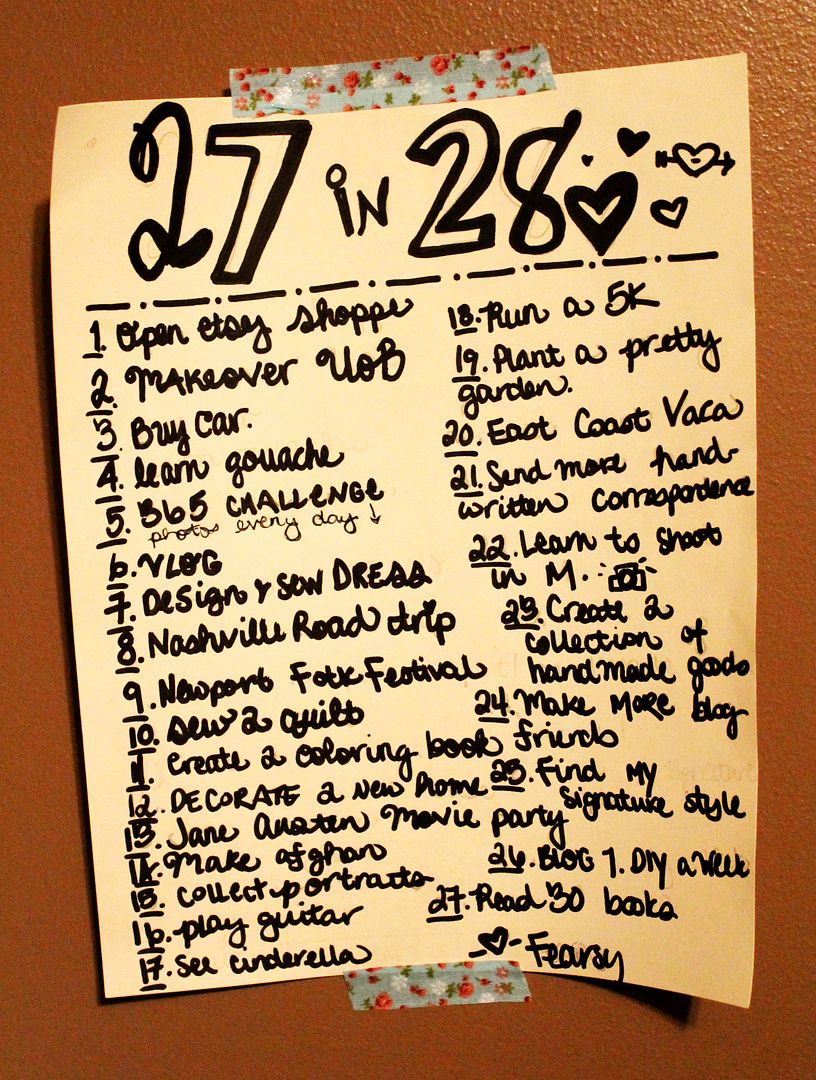 27 in 28
1. Open etsy shoppe
2. Makeover UOB
3. Buy car.
4. learn gouache
5. 365 CHALLENGE
photos every day ↓
6. VLOG
7. Design & sew DRESS
8. Nashville Road trip
9. Newport Folk Festival
10. Sew a quilt
11. Create a coloring book
12. DECORATE a New Home
13. Jane Austen Movie party
14. Make afghan
15. collect portraits
16. play guitar
17. See cinderella
18. Run a 5K
19. Plant a pretty
garden.
20. East Coast Vaca
21. Send more hand-
written correspondence
22. Learn to shoot
in M.
23. Create a
collection of
handmade goods
24. Make MORE blog
friends
25. Find My
signature style
26. BLOG 1. DIY a week
27. Read 30 books
- Fearsy